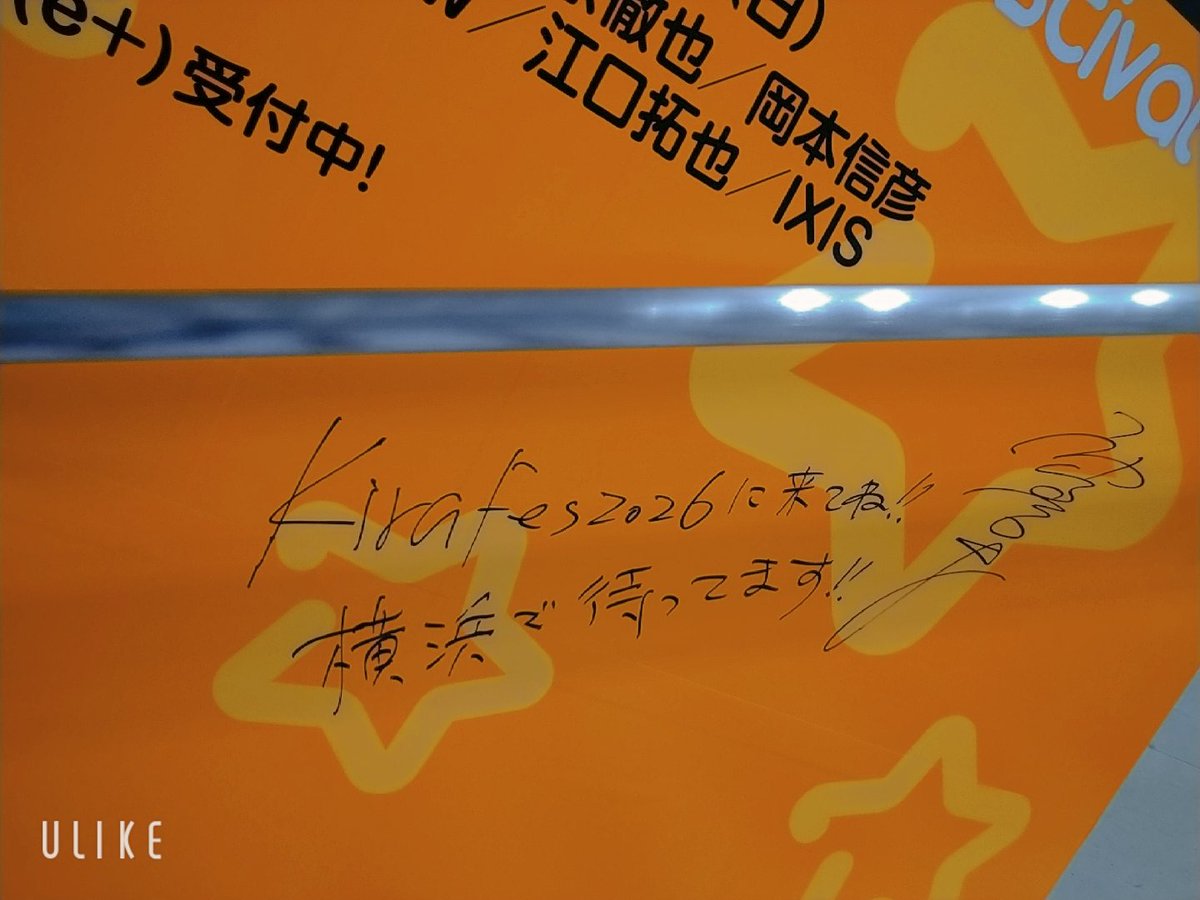 (e+)受付中!
(日)
徹也/岡本信彦
/江口拓也/IXIS
scival
Kirafes2026に来てね!!
横浜で待ってます!!
ULIKE